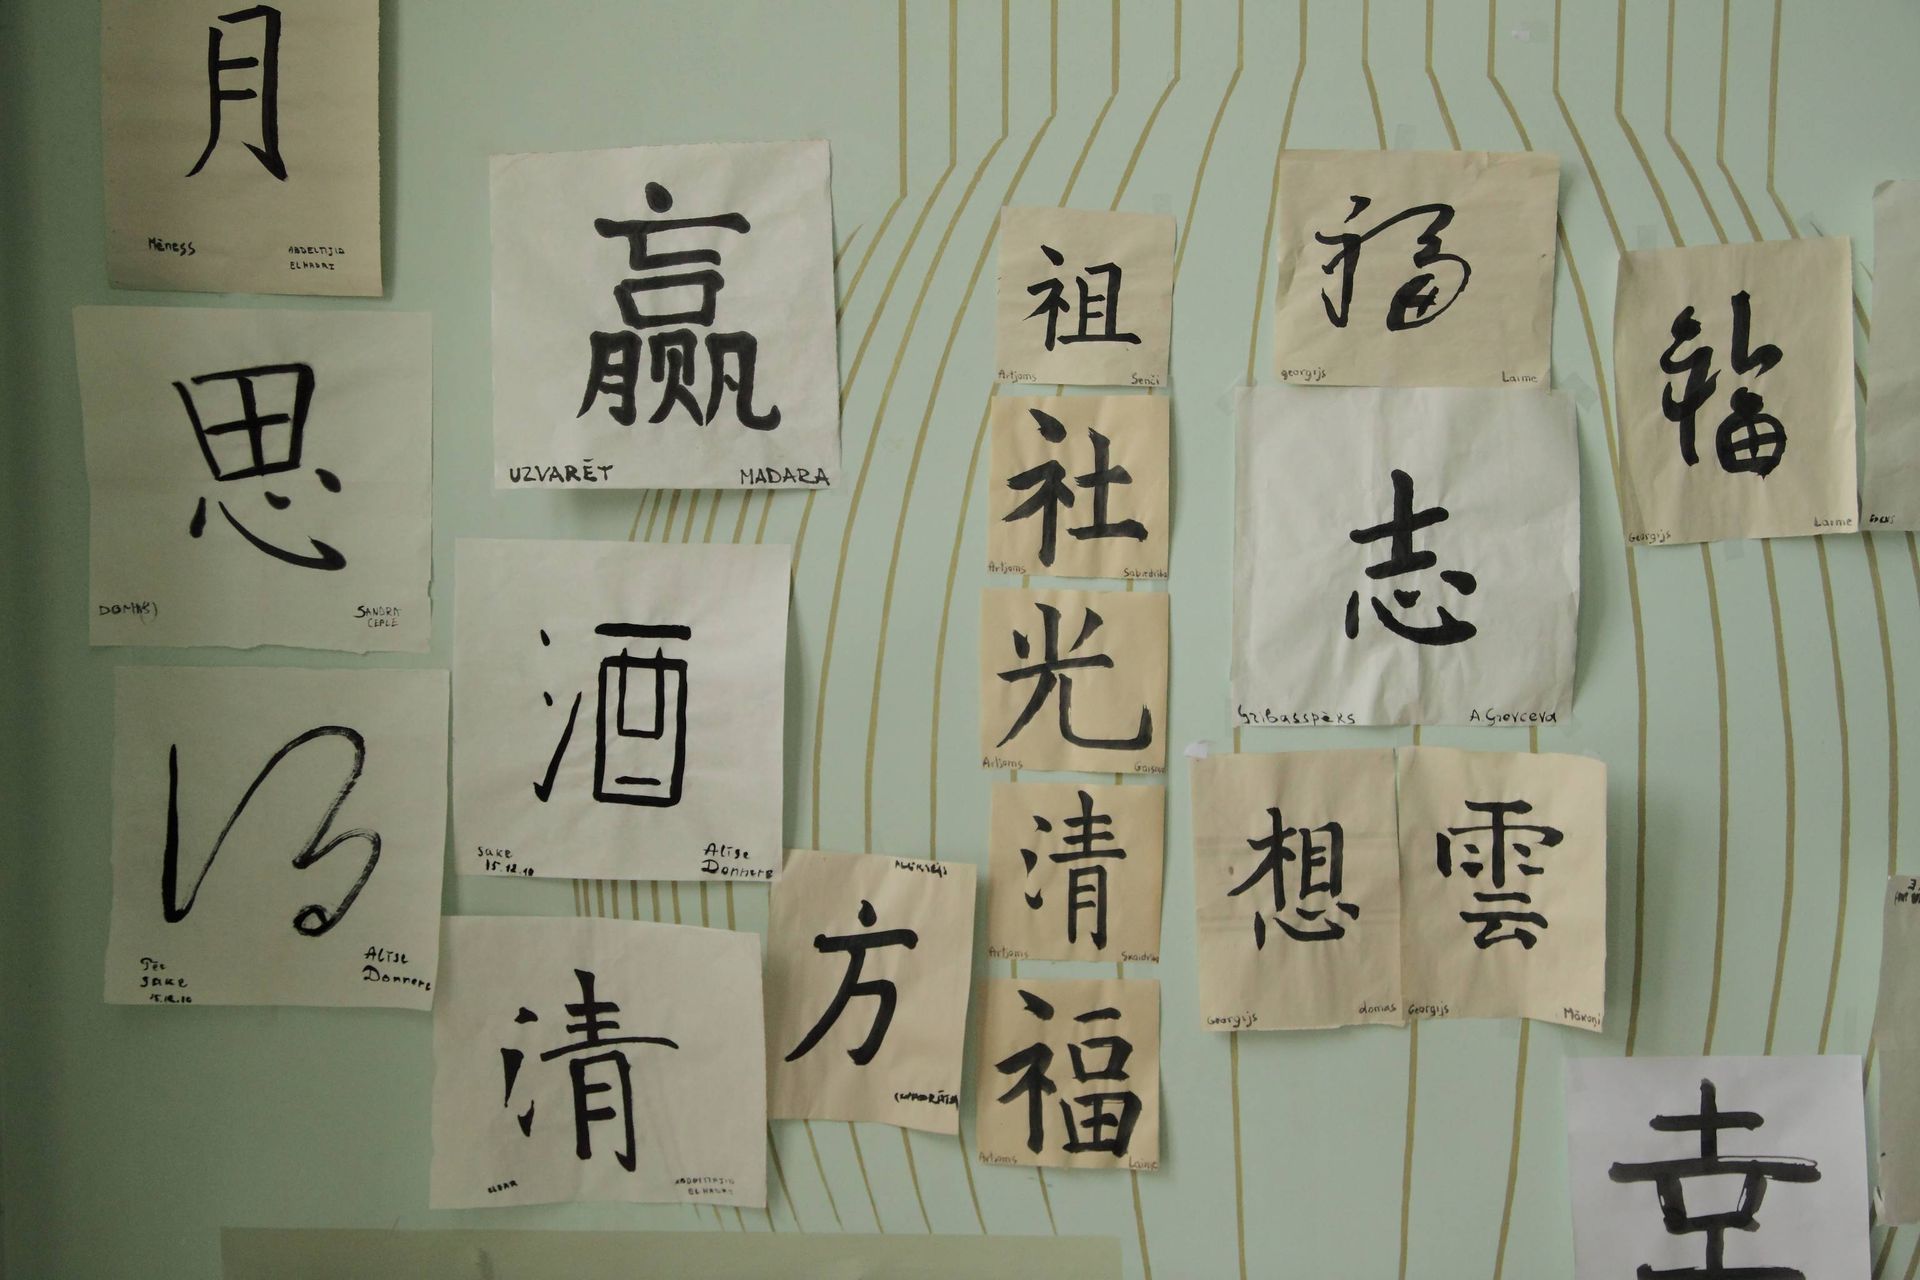 月
Mēness
ABDELMJID
ELHADRI
思
DOMA(S)
SANDRA
CEPLE
Pēc
sake
15.12.10
Alīse
Donnere
赢
UZVARĒT MADARA
酒
sake
15.12.10
Alīse
Donnere
清
ELGAR
ABDELMJID
ELHADRI
方
(KVADRĀTS)
祖
Artjoms Senči
社
Artjoms Sabiedrība
光
Artjoms Gaisma
清
Artjoms Skaidrība
福
Artjoms Laime
福
georgijs Laime
志
Gribasspēks A.Grevceva
想
Georgijs domas
雲
Georgijs Mākoņi
福
Georgijs Laime
幸